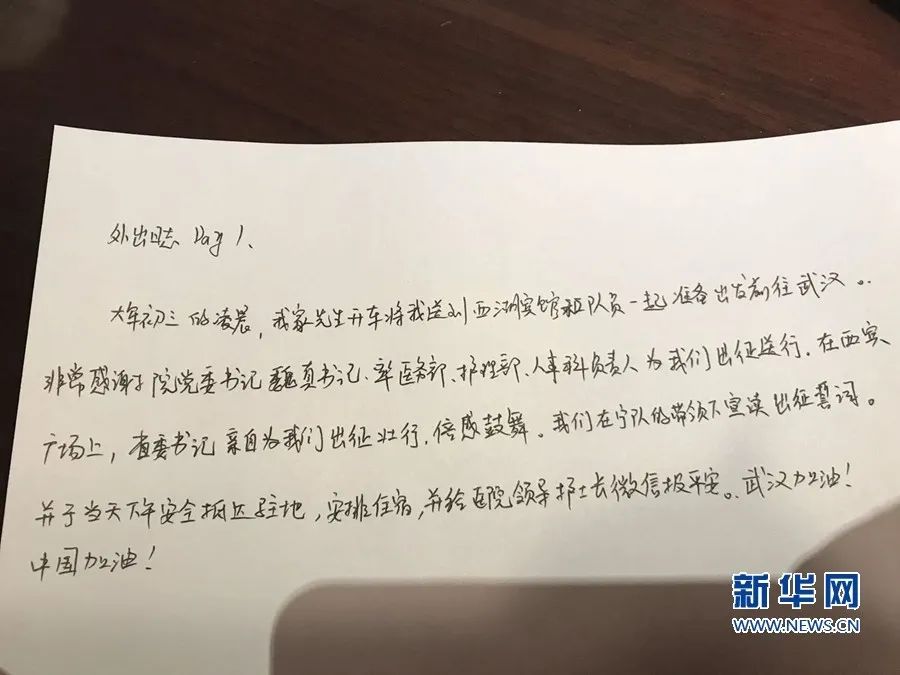 外出日志 Day 1、
大年初三的凌晨，我家先生开车将我送到西湖宾馆和队员一起准备出发前往武汉。
非常感谢于院党委书记 魏真书记、率医务部、护理部、人事科负责人为我们出征送行。在西宾
广场上，省委书记亲自为我们出征壮行，倍感鼓舞。我们在宁队的带领下宣读出征誓词。
并于当天下午安全抵达驻地，安排住宿，并给医院领导护士长微信报平安。武汉加油！
中国加油！
新华网
WWW.NEWS.CN